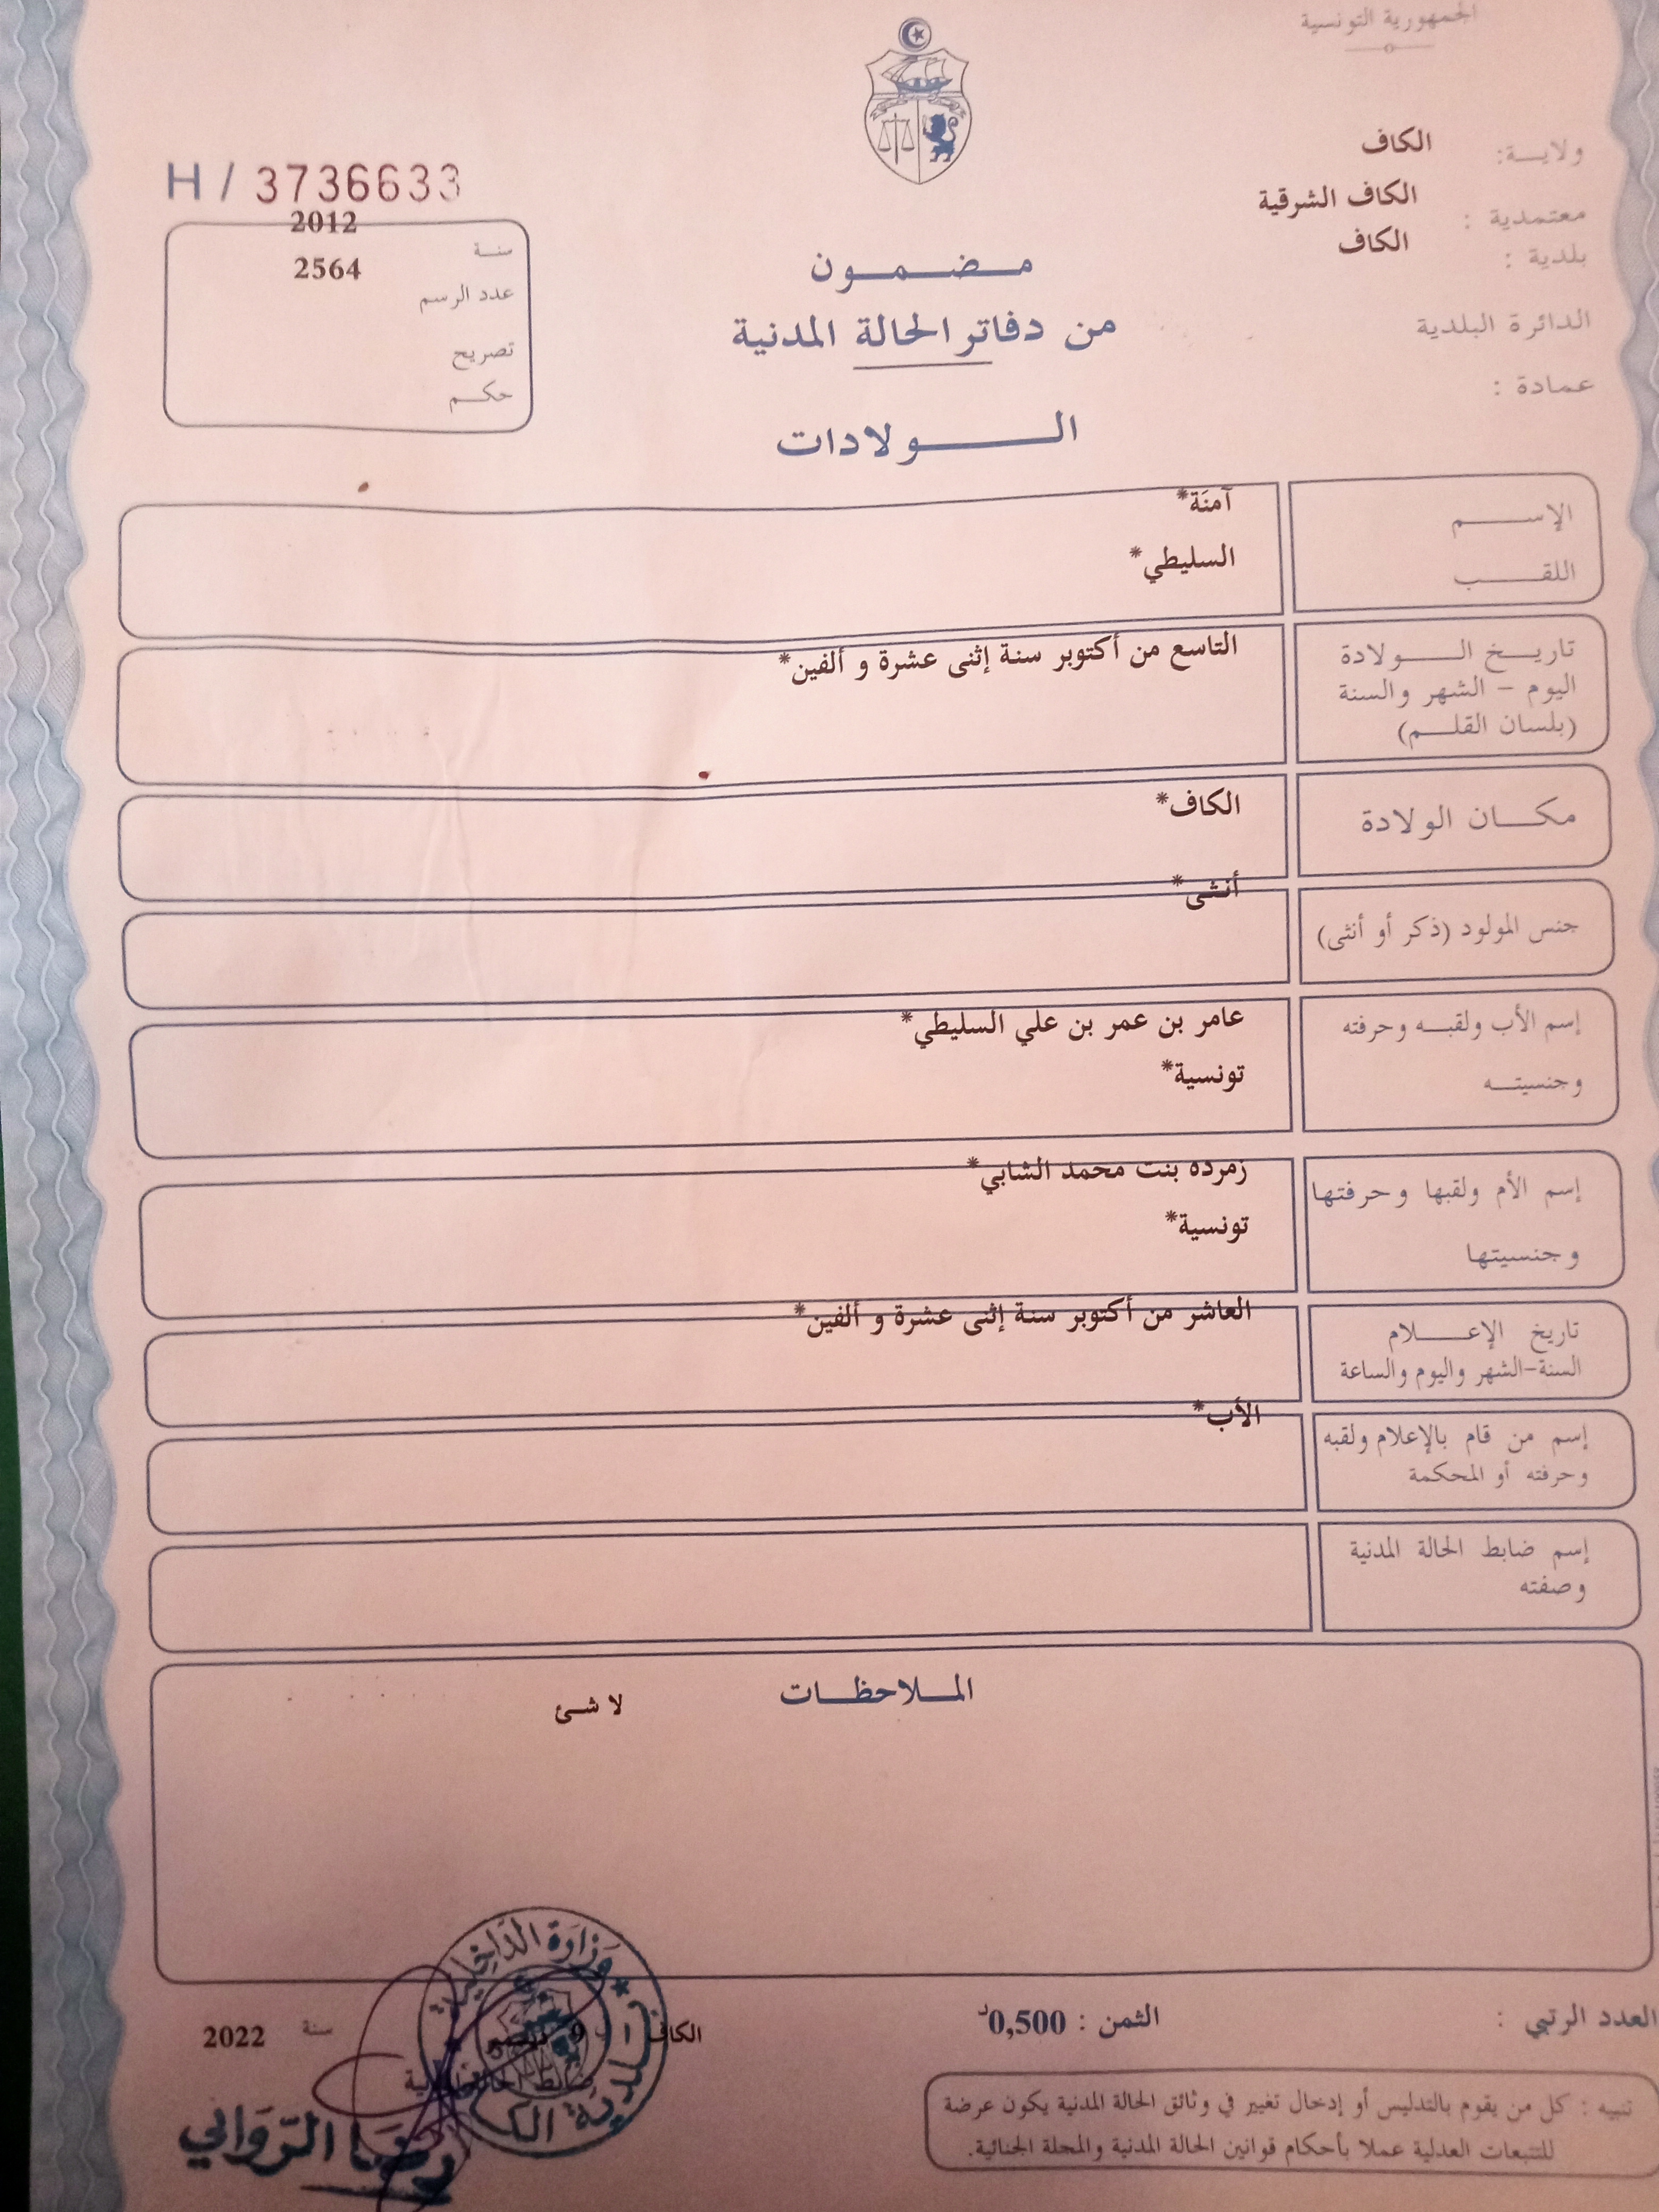 الجمهورية التونسية
ولاية: الكاف
معتمدية : الكاف الشرقية
بلدية : الكاف
الدائرة البلدية
عمادة :
H / 3736633
سنة 2012
عدد الرسم 2564
تصريح
حكم
مضمون
من دفاتر الحالة المدنية
الولادات
الإسم آمنَة*
اللقب السليطي*
تاريخ الولادة التاسع من أكتوبر سنة إثنى عشرة و ألفين*
اليوم - الشهر والسنة
(بلسان القلم)
مكان الولادة الكاف*
جنس المولود (ذكر أو أنثى) أنثى*
إسم الأب ولقبه وحرفته عامر بن عمر بن علي السليطي*
وجنسيته تونسية*
إسم الأم ولقبها وحرفتها زمرده بنت محمد الشابي*
وجنسيتها تونسية*
تاريخ الإعلام العاشر من أكتوبر سنة إثنى عشرة و ألفين*
السنة-الشهر واليوم والساعة
إسم من قام بالإعلام ولقبه الأب*
وحرفته أو المحكمة
إسم ضابط الحالة المدنية
وصفته
الملاحظات
لا شئ
العدد الرتبي :
الثمن : 0,500د
الكاف 9 سنة 2022
وزارة الداخلية
بلدية الكاف
تنبيه : كل من يقوم بالتدليس أو إدخال تغيير في وثائق الحالة المدنية يكون عرضة
للتتبعات العدلية عملا بأحكام قوانين الحالة المدنية والمجلة الجنائية.